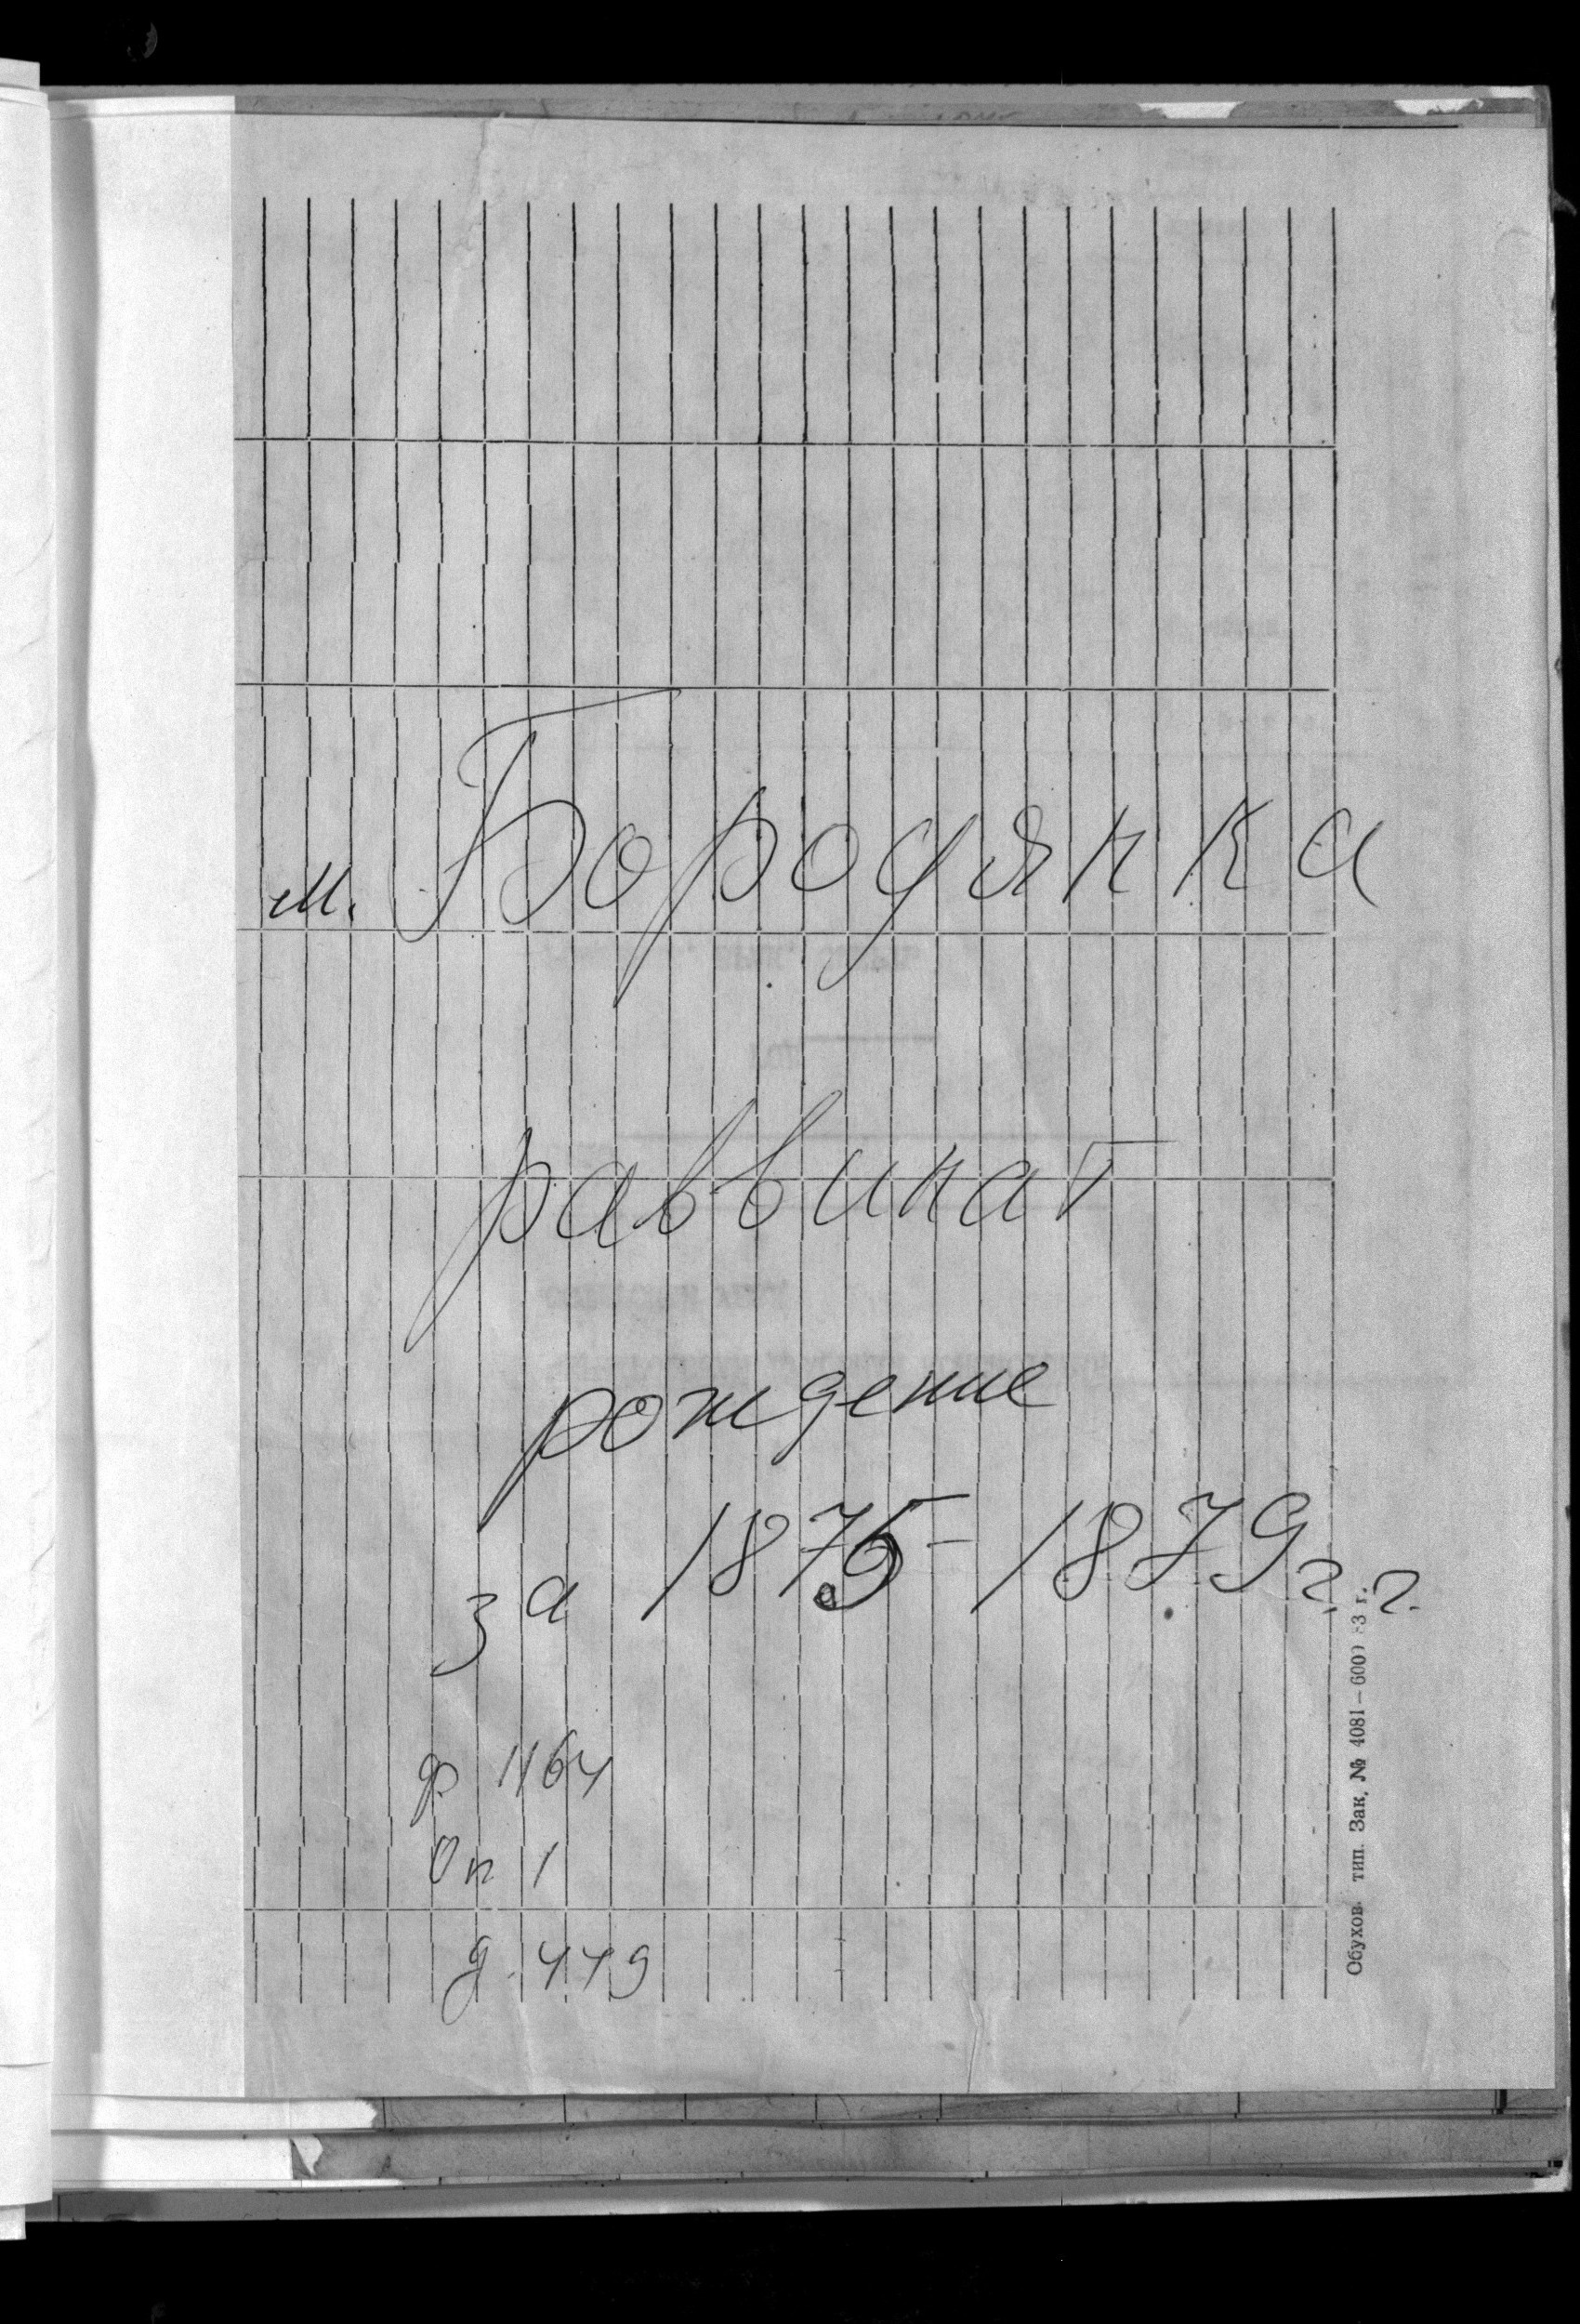 м. Бородянка
раввинат
рождение
за 1875-1879 г.г.
ф 1164
Оп 1
д. 449
Обухов. тип. Зак. № 4081—6000 83 г.